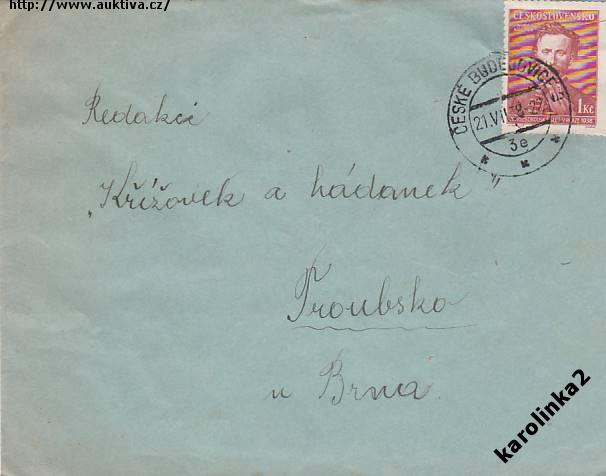 http://www.auktiva.cz/
ČESKOSLOVENSKO
1 Kč
ČESKÉ BUDĚJOVICE 3
21.VII.38
3e
Redakci
„Křížovek a hádanek“
Troubsko
u Brna.
karolinka2